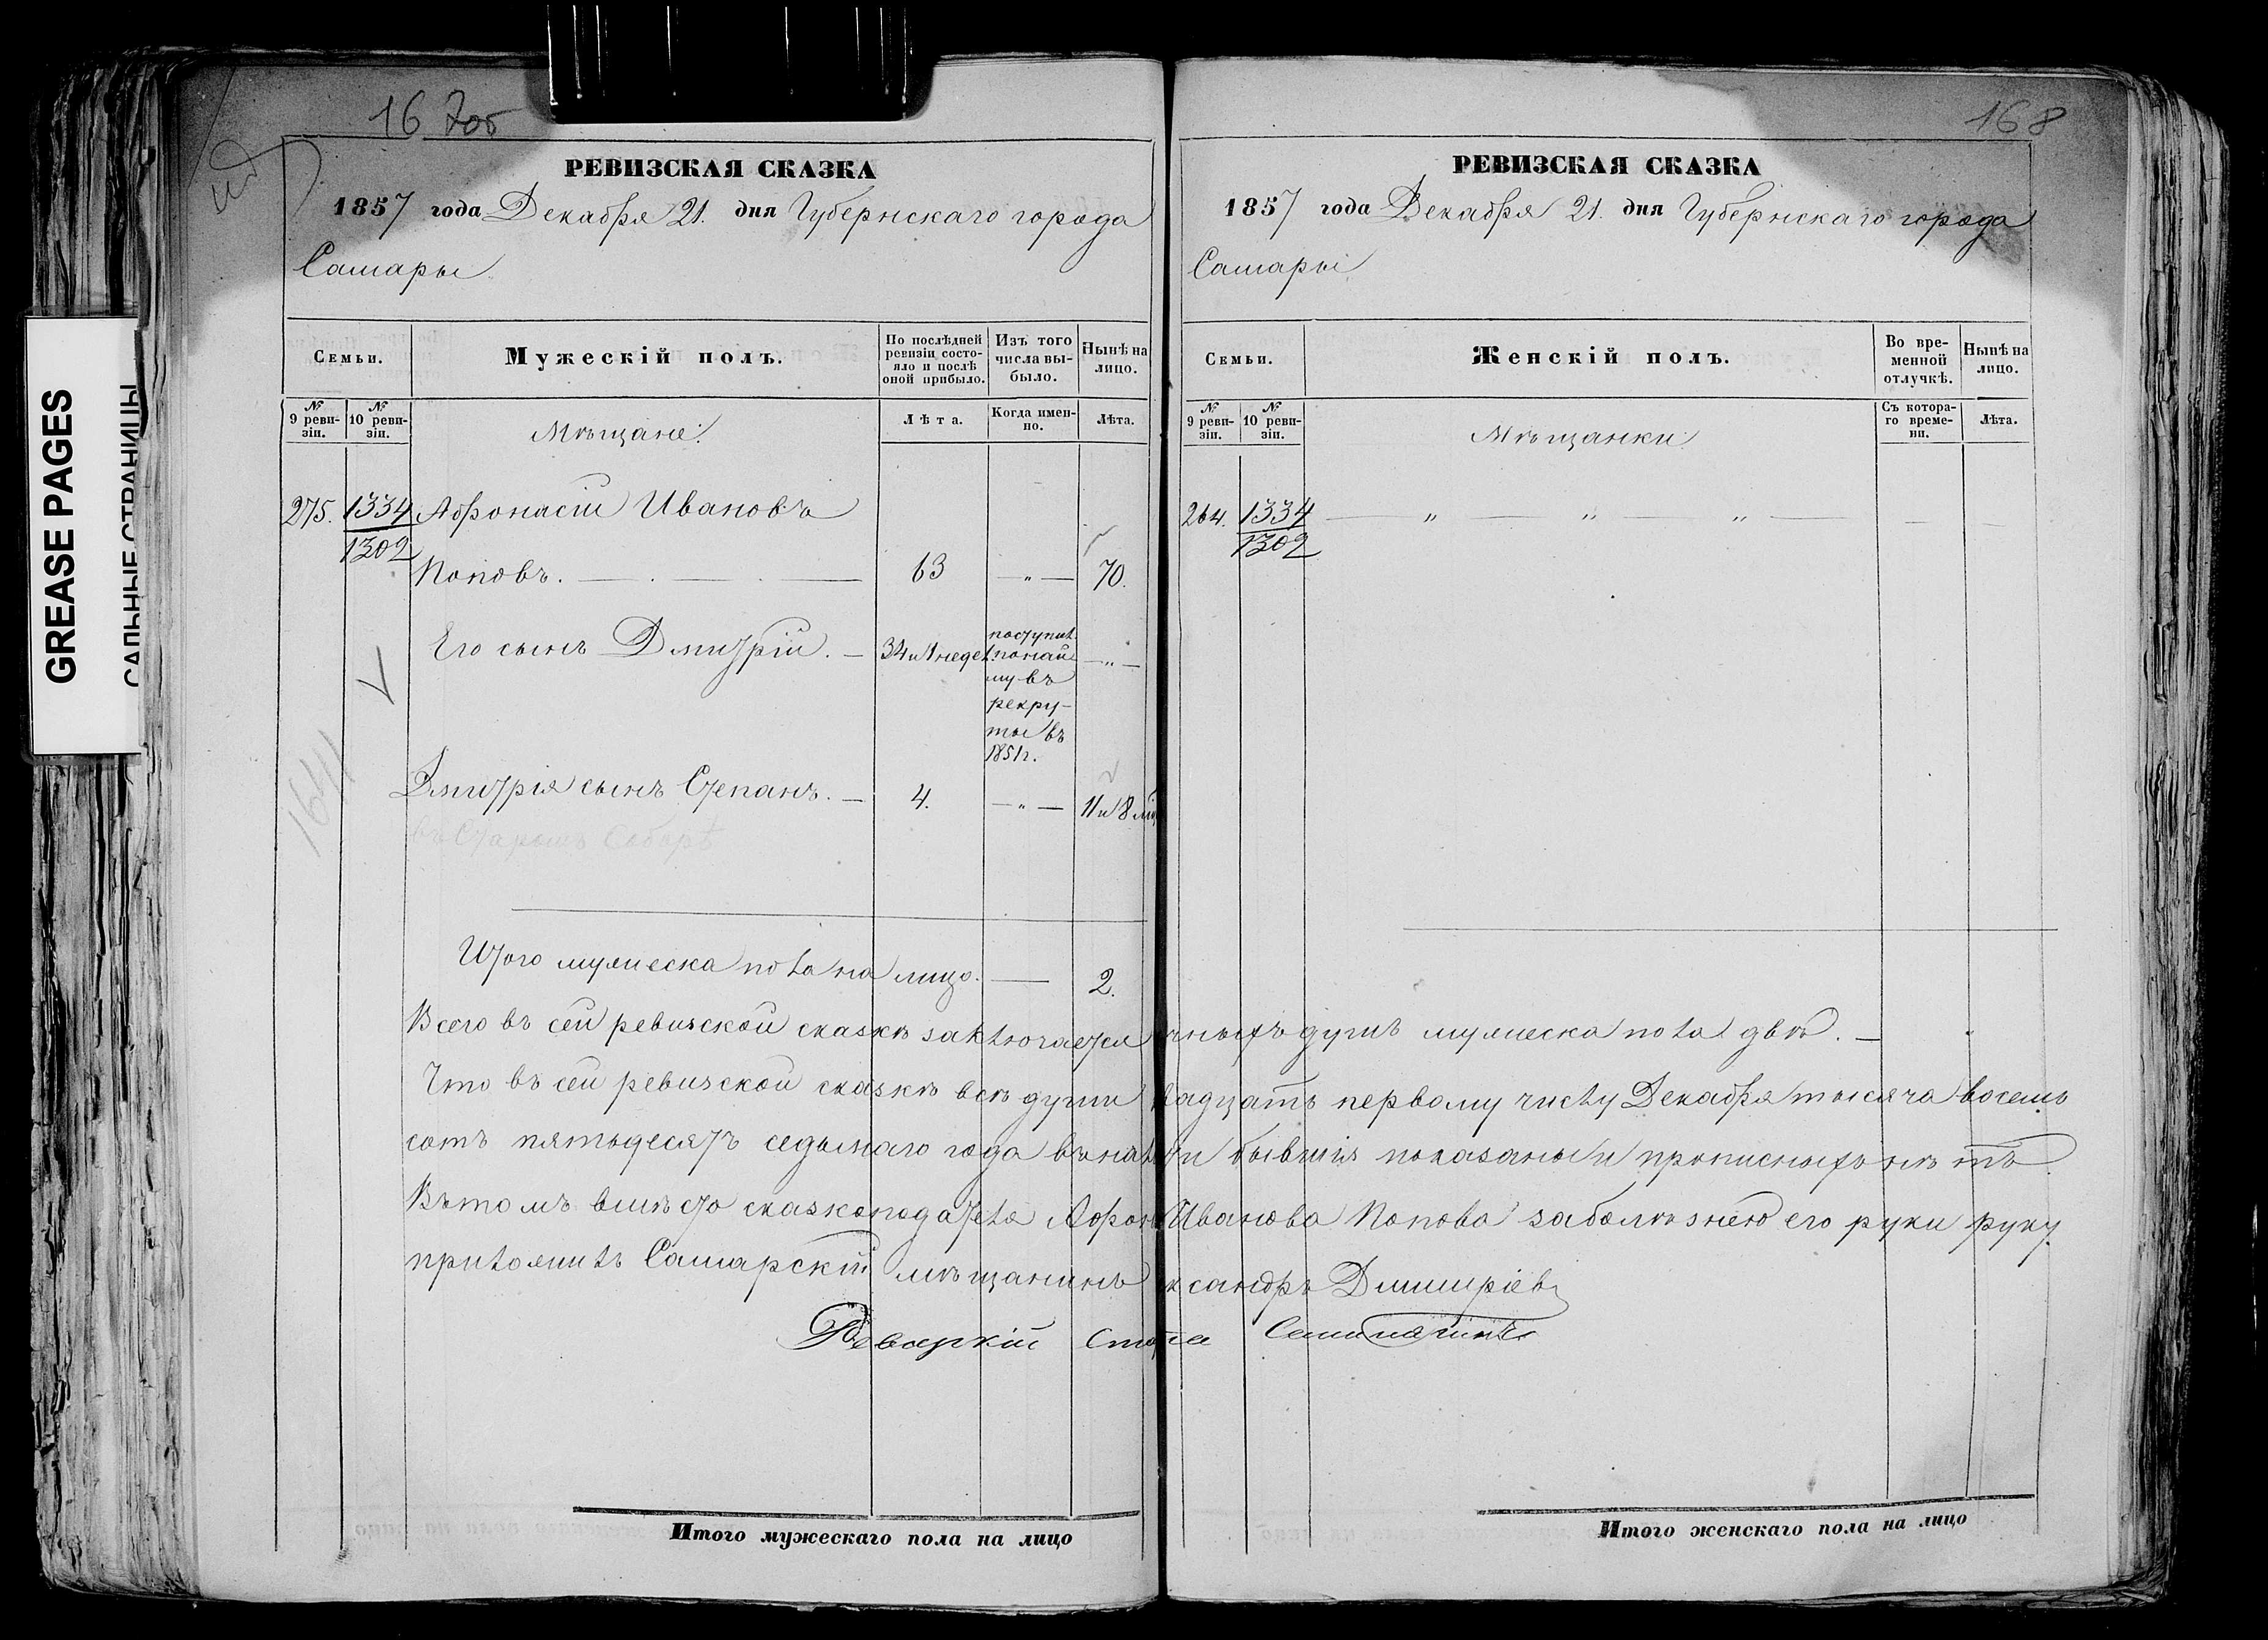 16 7об
168
GREASE PAGES
САЛЬНЫЕ СТРАНИЦЫ
РЕВИЗСКАЯ СКАЗКА
1857 года Декабря 21. дня Губернскаго города
Самары
Семьи.
Мужескій полъ.
По послѣдней ревизіи состояло и послѣ оной прибыло.
Изъ того числа выбыло.
Нынѣ на лицо.
№ 9 ревизіи.
№ 10 ревизіи.
Мѣщане.
Лѣта.
Когда именно.
Лѣта.
275. 1334 Афонасій Ивановъ
1302
Поповъ. — 63 — „ — 70.
Его сынъ Дмитрій. — 34 и 1 недел. — „ —
поступил.
по най
му въ
рекру-
ты въ
1851 г.
Дмитрія сынъ Степанъ. — 4. — „ — 11 и 8 мѣ
въ Старомъ Соборѣ
1641
Итого мужеска пола на лицо. — 2.
РЕВИЗСКАЯ СКАЗКА
1857 года Декабря 21. дня Губернскаго города
Самары
Семьи.
Женскій полъ.
Во временной отлучкѣ.
Нынѣ на лицо.
№ 9 ревизіи.
№ 10 ревизіи.
Мѣщанки
Съ котораго времени.
Лѣта.
264. 1334 — „ — „ „ — —
1302
Всего въ сей ревизской сказкѣ заключается чныхъ душъ мужеска пола двѣ. —
Что въ сей ревизской сказкѣ всѣ души вадцать первому числу Декабря тысяча восемь
сотъ пятьдесятъ седьмаго года въ нал и бывшія показаны и прописныхъ нѣтъ
Въ томъ вмѣсто сказкоподателя Афон Иванова Попова за болѣзнею его руки руку
приложилъ Самарскій мѣщанинъ ксандръ Дмитріевъ
Итого мужескаго пола на лицо
Итого женскаго пола на лицо